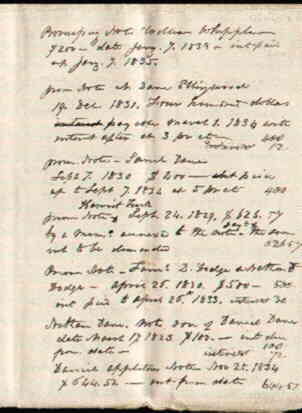 Promissory Note William Whipple
$200 - date Jany. 7. 1834 - int paid
up Jany. 7. 1835.
prom Note N Dane Ellingwood
19 Dec 1831. Four hundred dollars
payable March 1. 1834 with
interest after at 3 pr ct 400
12
prom. Note - Samel Dane
Sept 7. 1830 $400 - int paid
up to Sept 7. 1832 at 5 pr ct 400
prom Note Sept. 24. 1829, $626.57
by a mem. annexed to the note the sum
not to be demanded 626 57
Prom Note - Saml D. Dodge & Nathan D
Dodge - April 25. 1830. $500 - 500
int paid to April 25th 1833. interest
Nathan Dane. Note Don of Daniel Dane
date March 17 1823 $100. - int due
from date - interest 100
72
Daniel Appleton Note Nov 25. 1834
$644.52 - int from date 644.52